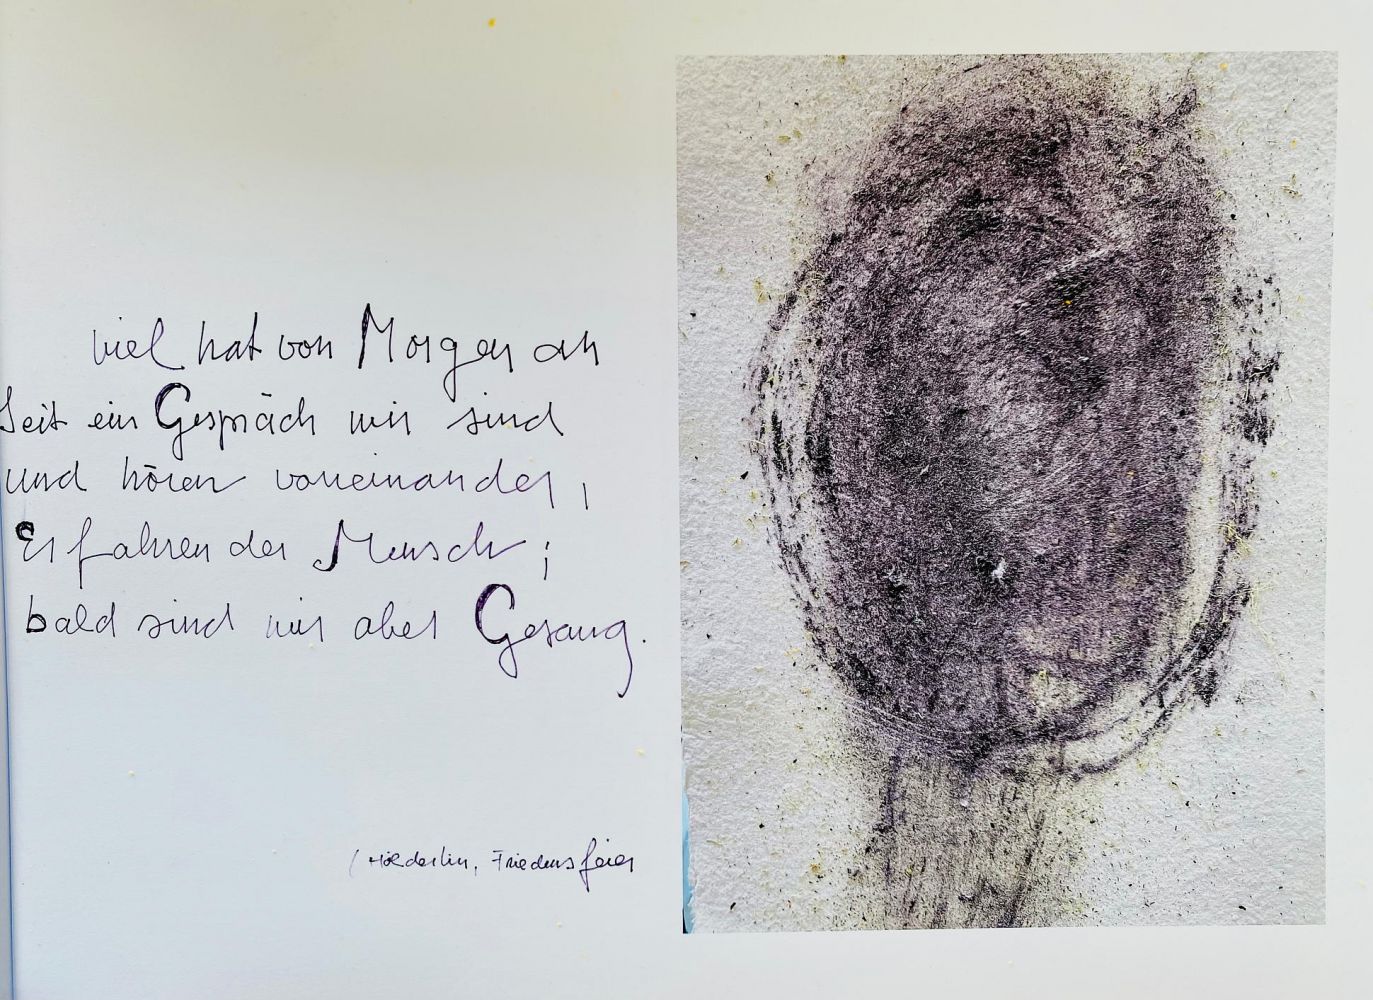 viel hat von Morgen an
Seit ein Gespräch wir sind
und hören voneinander,
Erfahren der Mensch;
bald sind wir aber Gesang.
(Hölderlin, Friedensfeier